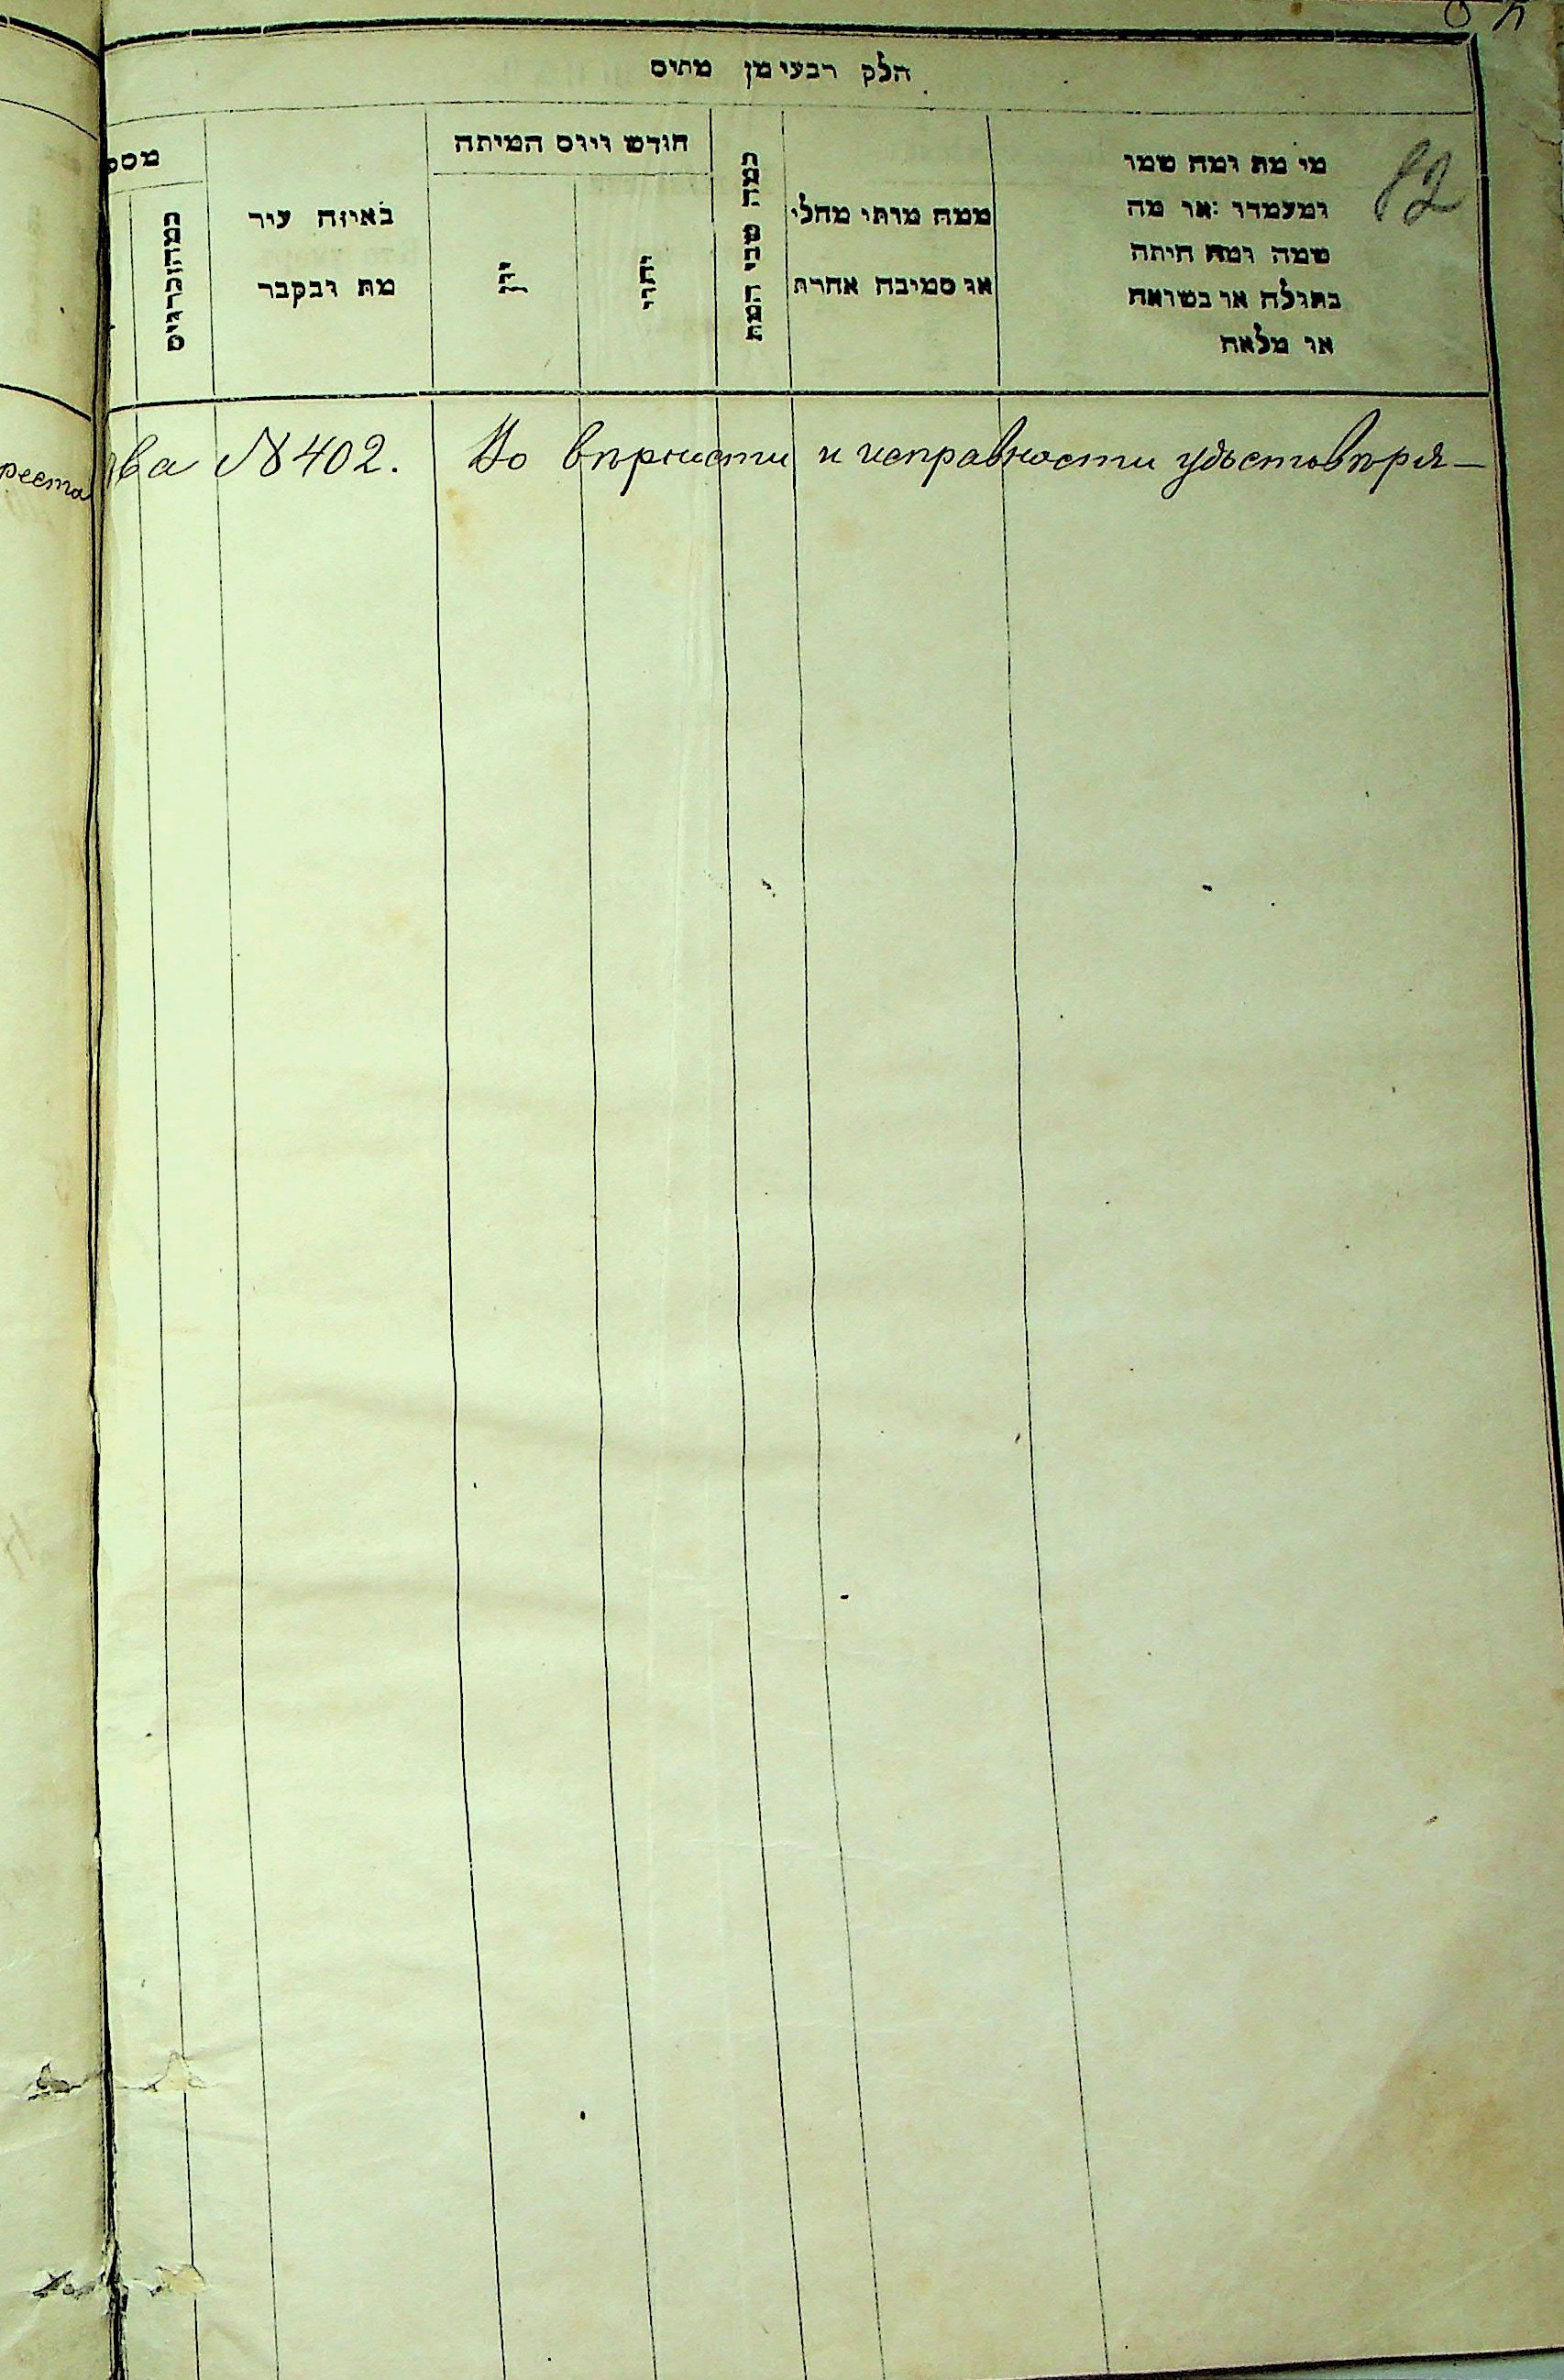 חלק רבעי מן מתים
מי מת ומה שמו
ומעמדו :או מה
שמה ומה היתה
בתולה או בשואה
או מלאה
ממה מותי מחלי
או סמיבה אחרת
כמה שני המת
חודש ויום המיתה
יהודי
באיזה עיר
מת ונקבר
מספ
82
реста
ва №402. Во верности и исправности удостоверя—